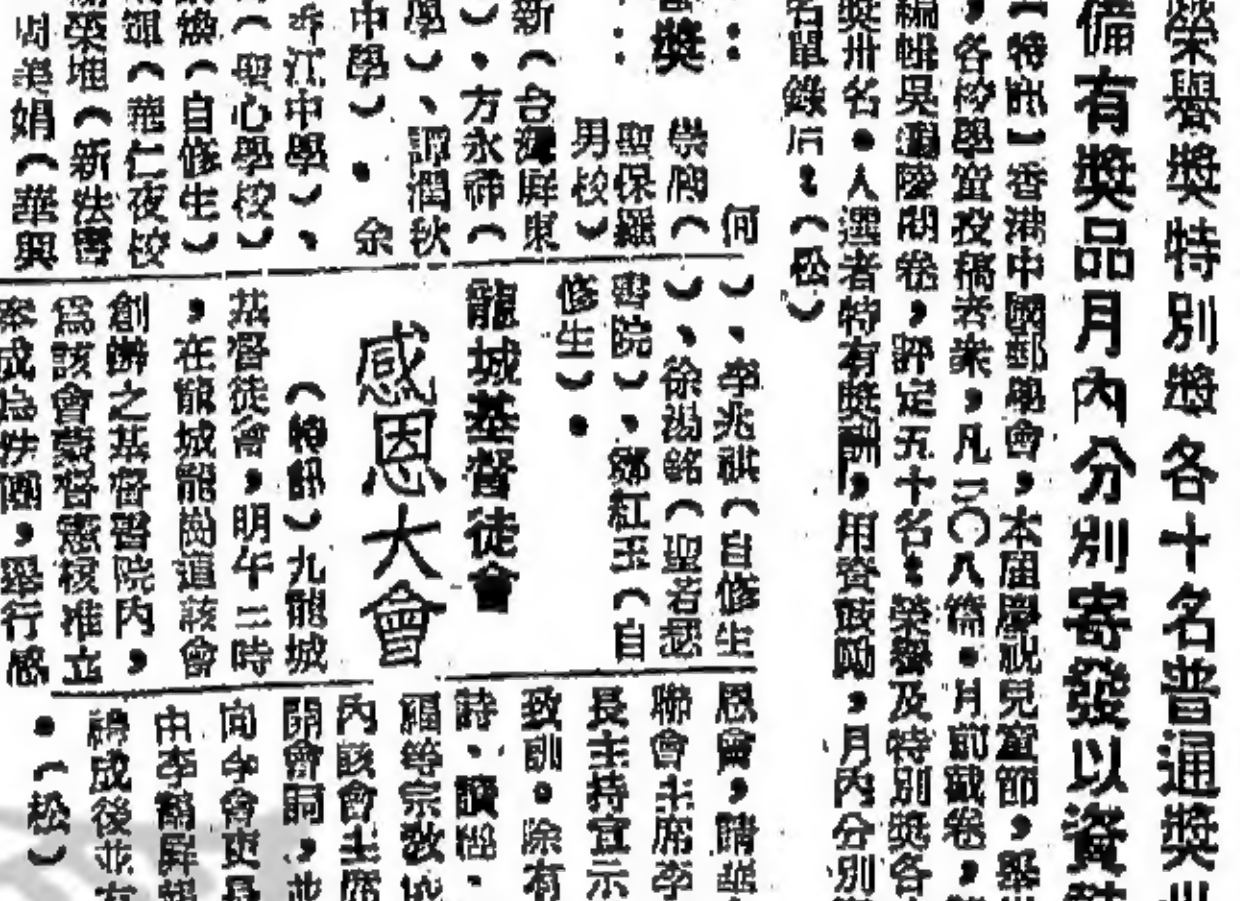 榮譽獎特別獎各十名普通獎卅
備有獎品月內分別寄發以資
【特訊】香港中國郵學會，本屆慶祝兒童節，舉
，各校學童投稿者衆，凡二〇八篇。月前截卷，
編輯吳 陵閱卷，評定五十名：榮譽及特別獎各
獎卅名。人選者特有獎酬，用資鼓勵，月內分別
名單錄后：（松）
：
獎
：
何
崇 （
聖保羅
男校）
新（台灣屏東
）、方永 （
學）、譚潤秋
中學）。余
香江中學）、
（聖心學校）
煥（自修生）
（華仁夜校
榮堆（新法書
周美娟（華興
）、李兆祺（自修生
）、徐 銘（聖若瑟
書院）、鄭紅玉（自
修生）。
龍城基督徒會
感恩大會
（特訊）九龍城
基督徒會，明午二時
，在龍城龍崗道該會
創辦之基督書院內，
爲該會蒙督憲核准立
案成爲 團，舉行感
恩會，請
聯會主席李
長主持宣示
致訓。除有
詩、讀經、
福等宗敎
內該會主席
開會詞，並
向 會吏長
由李
成後並有
。（松）